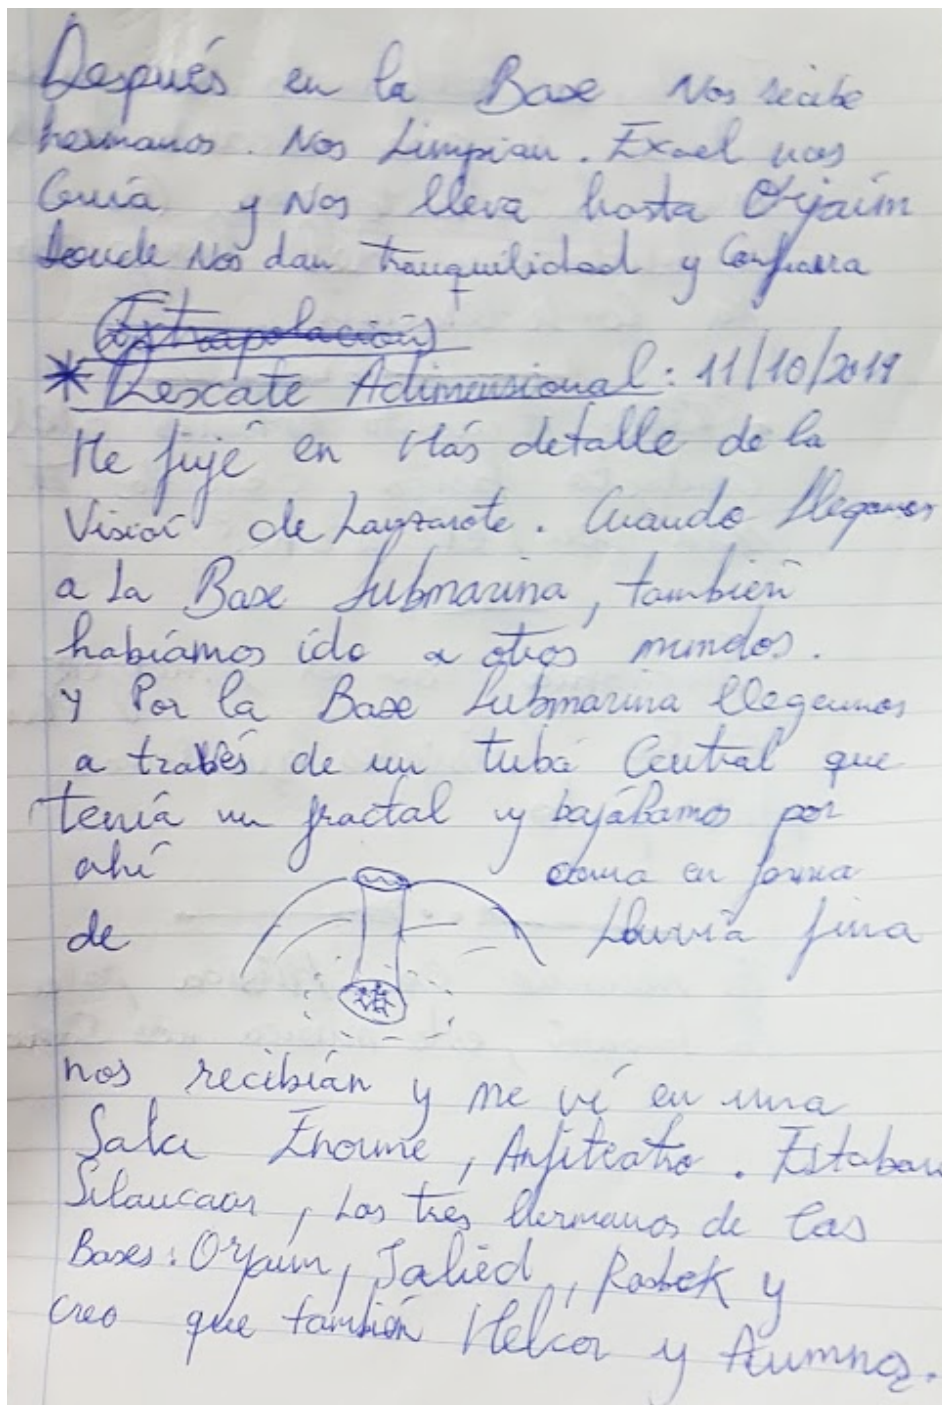 Después en la Base Nos recibe
hermanos. Nos Limpian. Exael nos
Guía y Nos lleva hasta Orjaim
Donde Nos dan tranquilidad y Confianza
Extrapolación
* Rescate Adimensional: 11/10/2019
Me fijé en Más detalle de la
Visión de Lanzarote. Cuando Llegamos
a La Base Submarina, también
habíamos ido a otros mundos.
y Por la Base Submarina llegamos
a través de un tubo Central que
tenía un fractal y bajábamos por
ahí como en forma
de Lluvia fina
nos recibían y me ví en una
Sala Enorme, Anfiteatro. Estaban
Los tres Hermanos de las
Bases: Orjaim, Jalied, Rasbek y
creo que también Melcor y